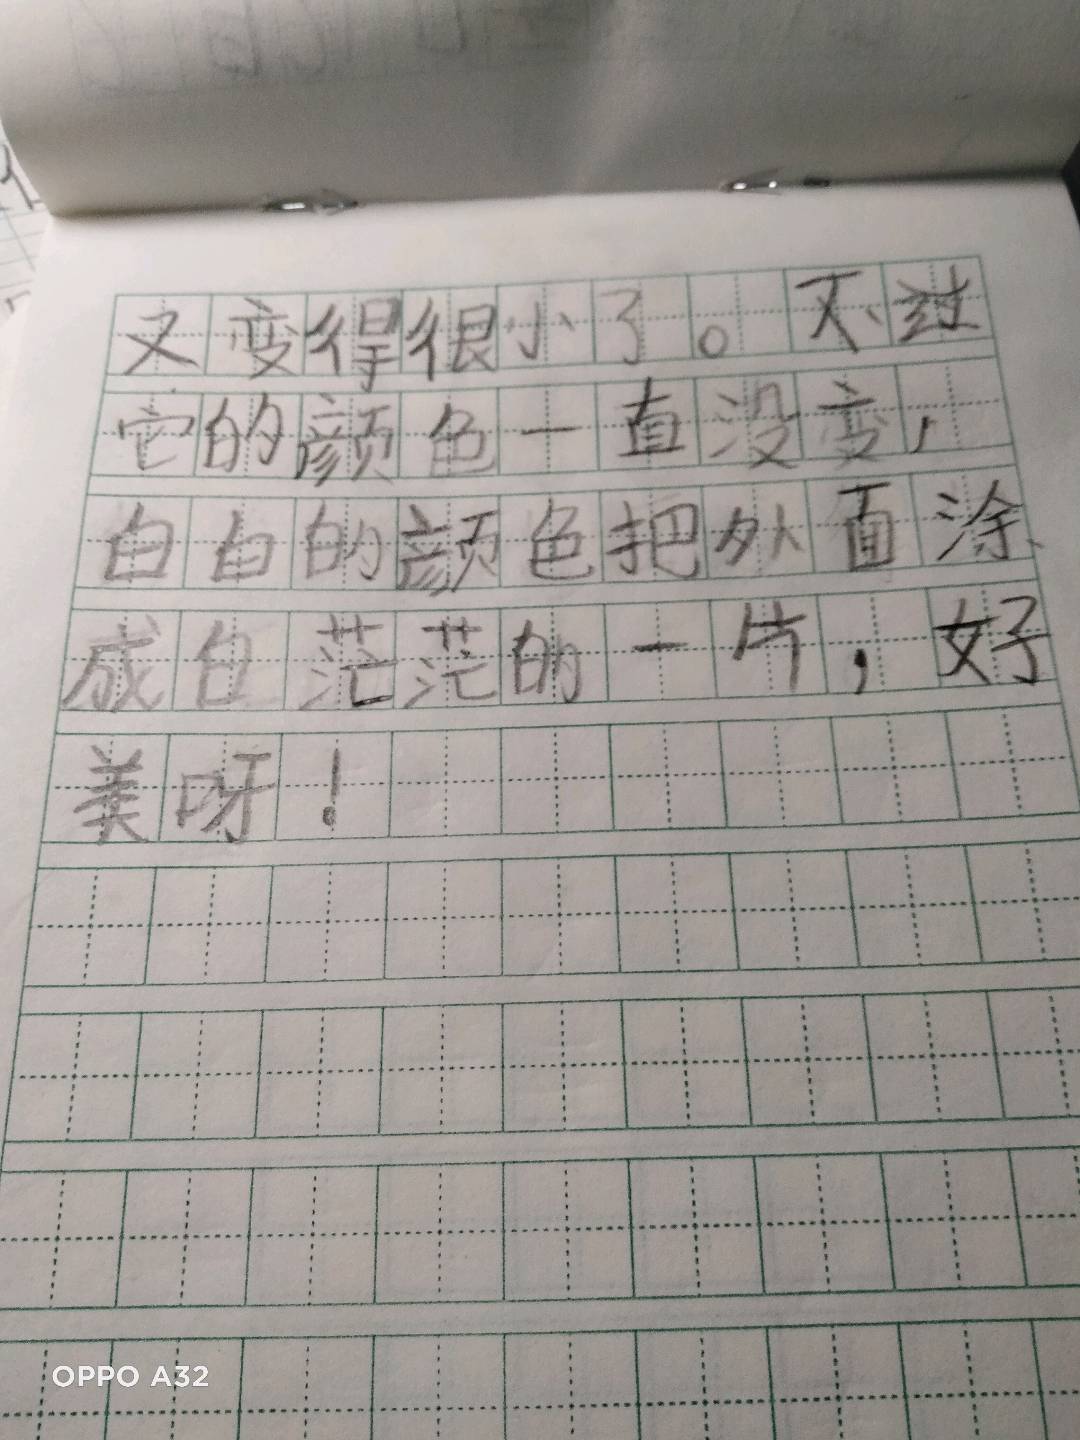 又变得很小了。不过
它的颜色一直没变，
白白的颜色把外面涂
成白茫茫的一片，好
美呀！
OPPO A32